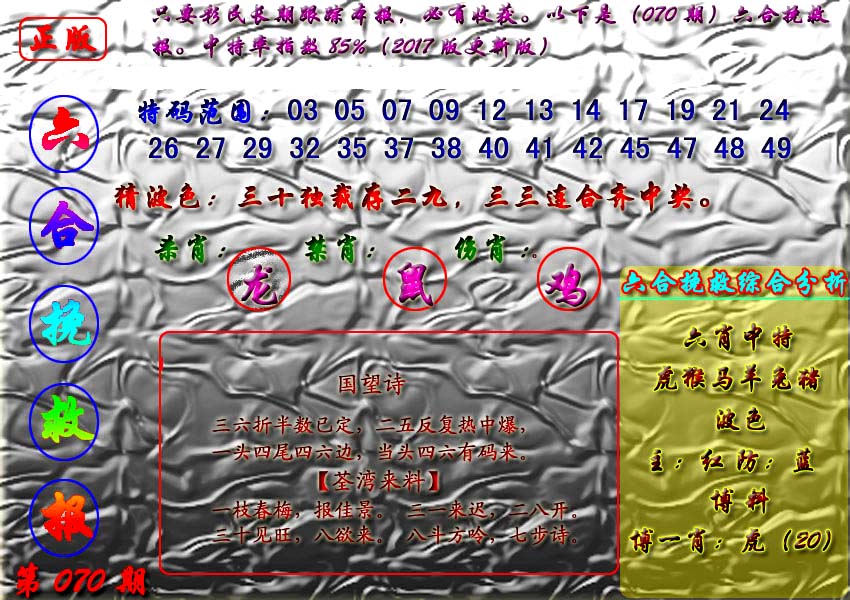 正版
只要彩民长期跟踪本报，必有收获。以下是（070期）六合挽救
报。中特率指数85%（2017版更新版）
六合挽救报
第070期
特码范围：03 05 07 09 12 13 14 17 19 21 24
26 27 29 32 35 37 38 40 41 42 45 47 48 49
猜波色：三十独裁存二九，三三连合齐中奖。
杀肖：龙 禁肖：鼠 伤肖：。鸡
国望诗
三六折半数已定，二五反复热中爆，
一头四尾四六边，当头四六有码来。
【荃湾来料】
一枝春梅，报佳景。 三一来迟，二八开。
三十见旺，八欲来。 八斗方吟，七步诗。
六合挽救综合分析
六肖中特
虎猴马羊兔猪
波色
主：红防：蓝
博料
博一肖：虎（20）